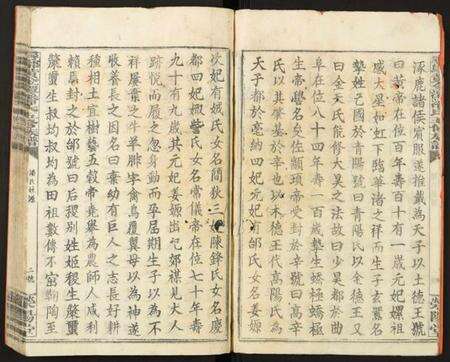 涿鹿諸侯賓服遂推戴為天子以土德王號
曰黃帝在位百年壽百十有一歲元妃嫘祖
感大星如虹下臨華渚之祥而生子玄囂名
摯姓己國於青陽號曰青陽氏以金德王又
曰金天氏能修大昊之法故曰少昊都於曲
阜在位八十四年壽一百歲摯生蟜極蟜極
生帝嚳名夋佐顓頊帝受封於辛號曰高辛
氏以其肇基於辛也以木德王代高陽氏為
天子都於亳納四妃元妃有邰氏女名姜嫄
次妃有娀氏女名簡狄三妃陳鋒氏女名慶
都四妃娵訾氏女名常儀帝在位七十年壽
九十有九歲其元妃姜嫄出祀郊禖見大人
跡悅而履之忽身動而孕居期生子以為不
祥屢棄之牛羊腓字禽鳥覆翼母以為神遂
收養長之因名曰棄幼有巨人之志長好耕
種相土宜樹藝五穀帝堯舉為農師人咸利
賴焉封之於邰號曰后稷別姓姬稷生漦璽
漦璽生叔均叔均為田祖數傳不窋鞠陶至